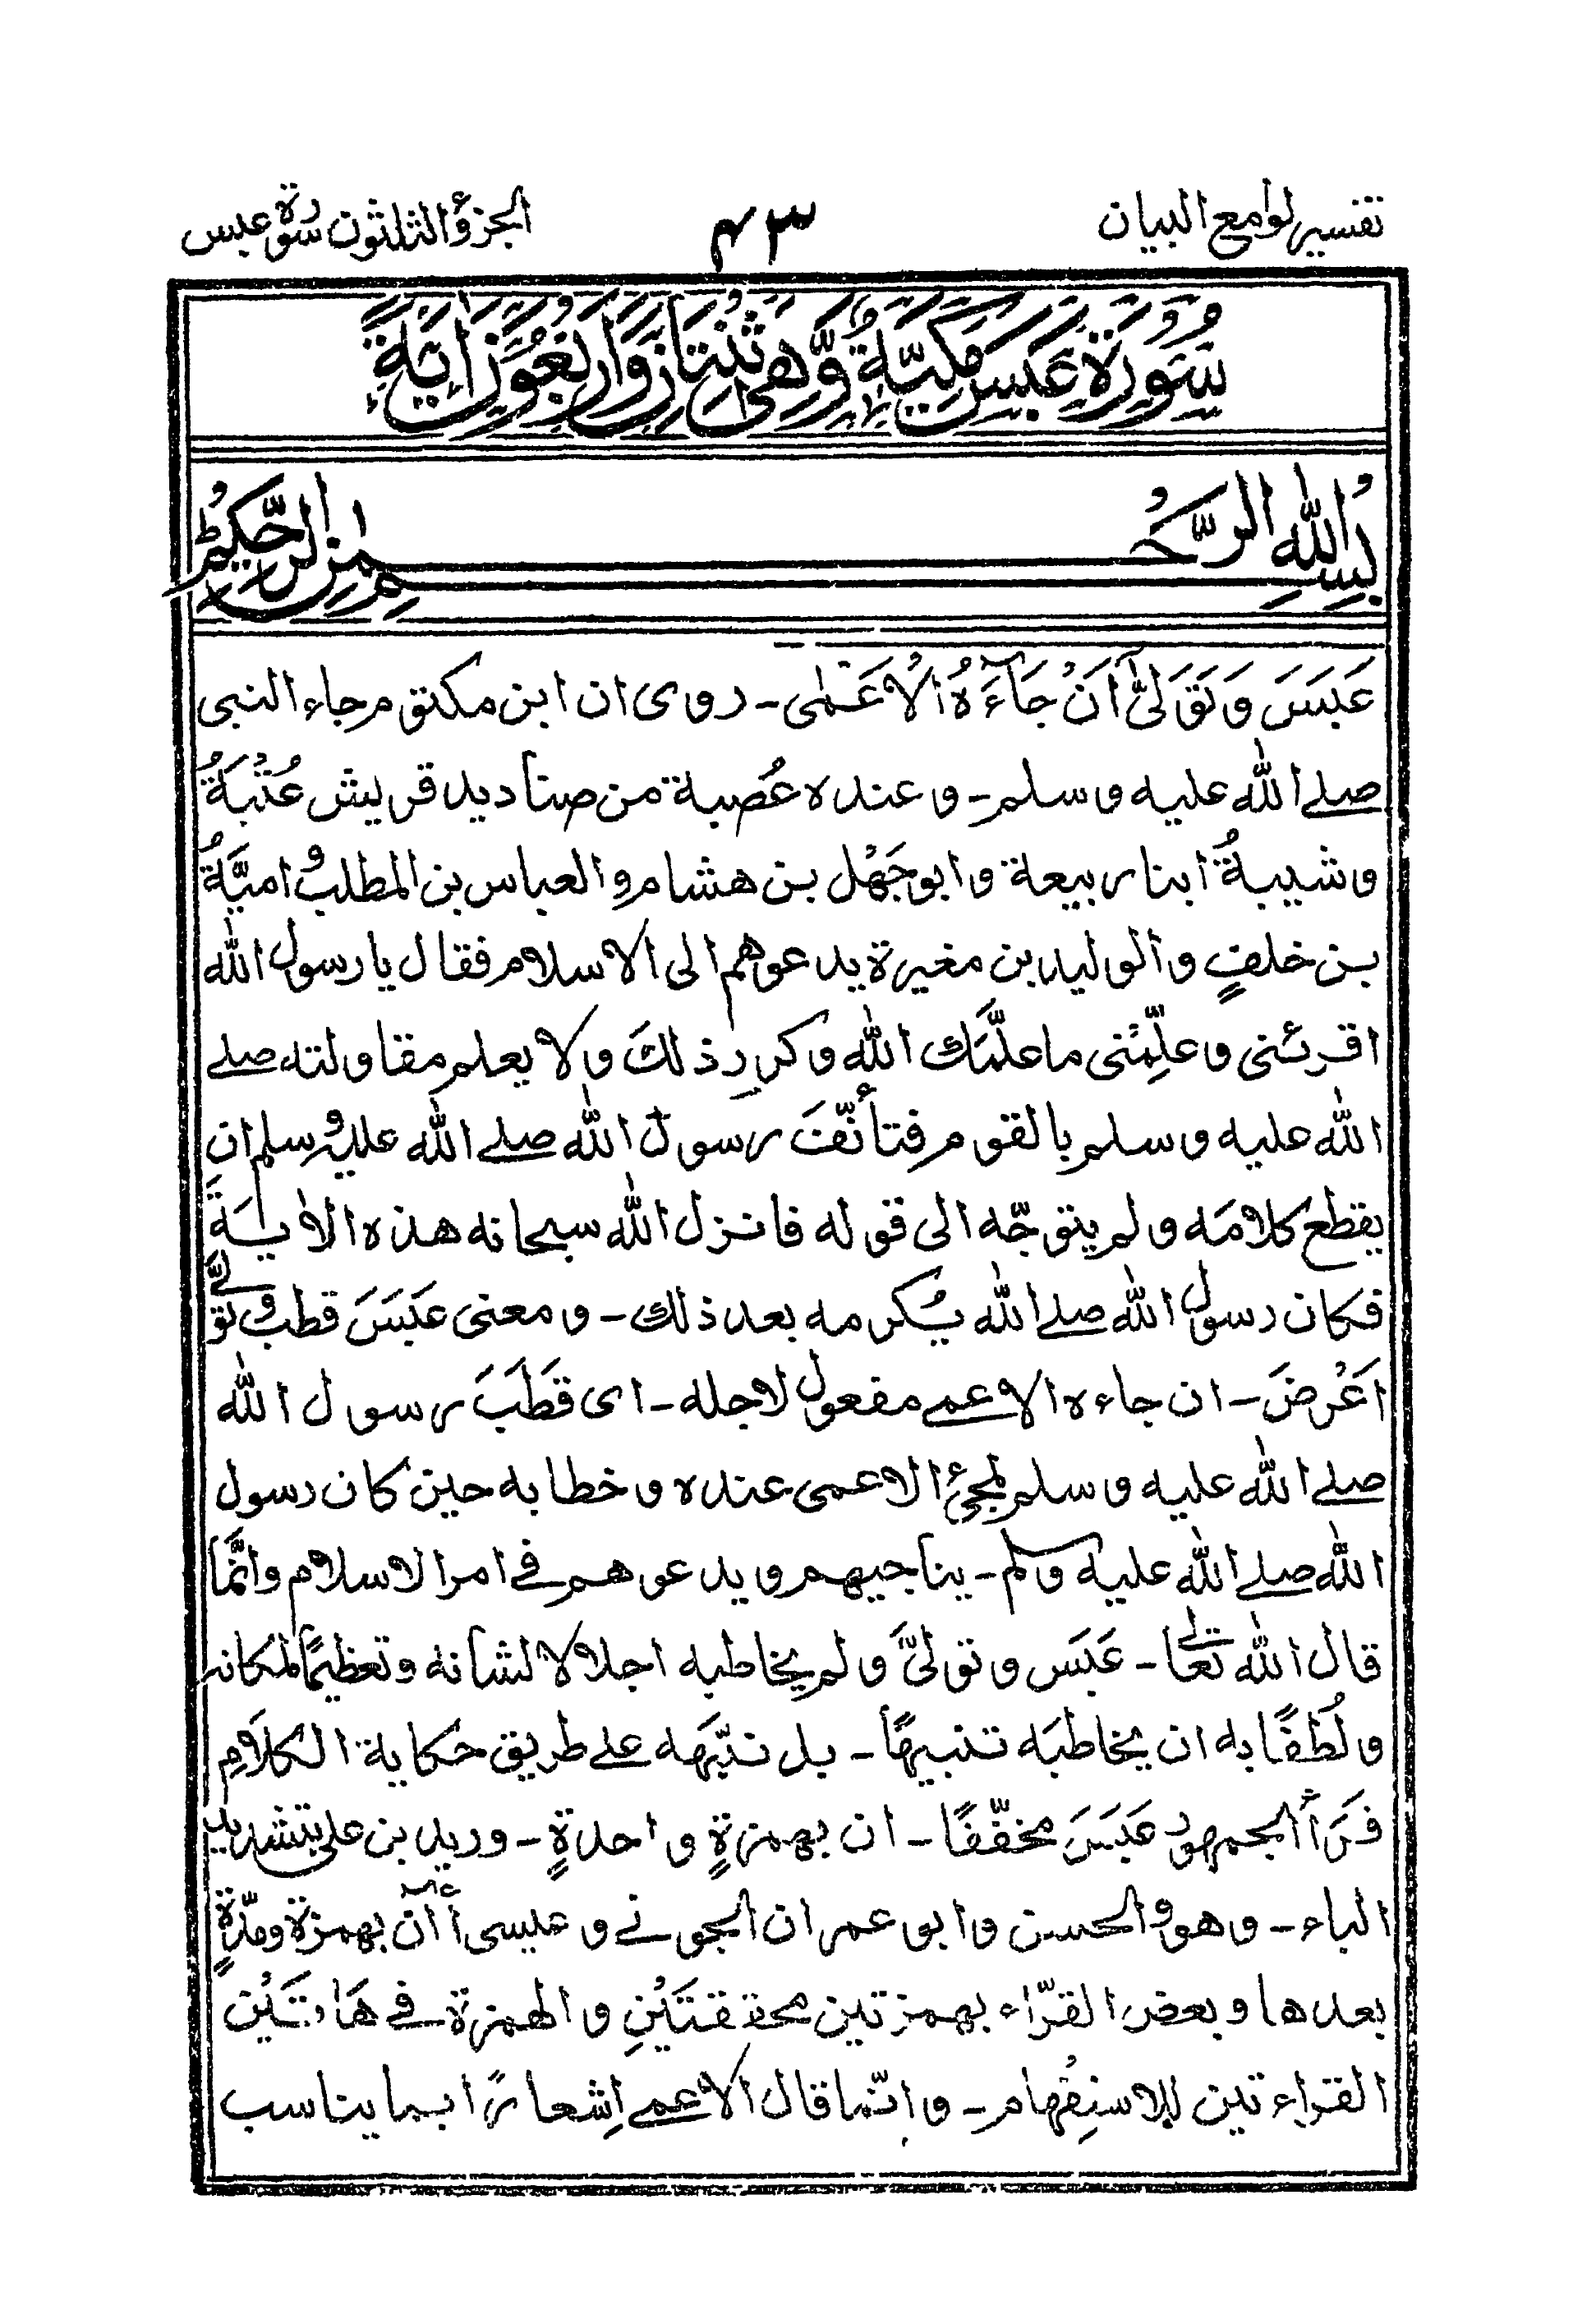 تفسير لوامع البيان
٤٣
الجزؤ الثلثون سورة عبس
سُوْرَةُ عَبَسَ مَكِّيَّةٌ وَّهِيَ ثْنَتَانِ وَاَرْبَعُوْنَ اٰيَةً
بِسْمِ اللهِ الرَّحْمٰنِ الرَّحِيْمِ
عَبَسَ وَتَوَلّٰىٓ اَنْ جَآءَهُ الْاَعْمٰى۔ روى ان ابن مكتوم جاء النبى
صلے الله عليه وسلم۔ وعنده عُصبة من صناديد قريش عُتْبَةُ
وشيبةُ ابنا ربيعة وابو جَهْل بن هشام والعباس بن المطلب وُاميَّةُ
بن خلفٍ والوليد بن مغيرة يدعوهم الى الاسلام فقال يا رسول الله
اقرئنى وعلِّمنى ما علَّمك الله وكرر ذلك ولا يعلم مقاولته صلے
الله عليه وسلم بالقوم فتأنّفَ رسول الله صلے الله عليه وسلم ان
يقطع كلامَه ولم يتوجّه الى قوله فانزل الله سبحانه هذه الاٰيةَ
فكان رسول الله صلے الله يُكرمه بعد ذلك۔ ومعنى عَبَسَ قطب وتولّٰى
اَعْرضَ۔ ان جاءه الاعمے مفعول لاجله۔ اى قَطَبَ رسول الله
صلے الله عليه وسلم لمجئ الاعمى عنده وخطابه حين كان رسول
الله صلے الله عليه وسلم۔ يناجيهم ويدعوهم فے امر الاسلام وانَّما
قال الله تعالٰى۔ عَبَس وتولىَّ ولم يخاطبه اجلالا لشانه وتعظيمًا لمكانه
ولُطْفًا به ان يخاطبَه تنبيهًا۔ بل نبّهَه علے طريق حكاية الكلامِ
فقرأ الجمهور عَبَسَ مخفّفًا۔ ان بهمزةٍ واحدةٍ۔ وزيد بن على بتشديد
الباء۔ وهو والحسن وابو عمران الجونے وعيسى أآن بهمزة ومدّةٍ
بعدها وبعض القرّاء بهمزتين محققتَيْنِ والهمزة فے هَاتَيْن
القراءتين للاستِفْهام۔ وانّما قال الاعمے اِشعارًا بما يناسب